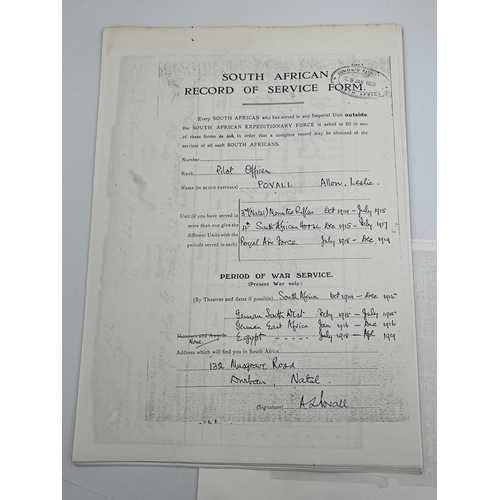 SOUTH AFRICAN
RECORD OF SERVICE FORM.
Every SOUTH AFRICAN who has served in any Imperial Unit outside
the SOUTH AFRICAN EXPEDITIONARY FORCE is asked to fill in one
of these forms in ink, in order that a complete record may be obtained of the
services of all such SOUTH AFRICANS.
Number
Rank Pilot Officer
Name (IN BLOCK CAPITALS) POVALL Allon, Leslie.
Unit (if you have served in
more than one give the
different Units with the
periods served in each)
3rd (Natal) Mounted Rifles Oct 1914 – July 1915
4th South African Horse Dec 1915 – Feby 1917
Royal Air Force July 1918 – Dec 1919
PERIOD OF WAR SERVICE.
(Present War only.)
(By Theatres and dates if possible) South Africa Oct 1914 – Dec 1915
German South West Feby 1915 – July 1915
German East Africa Jan 1916 – Dec 1916
Honours and Awards Egypt July 1918 – Apl 1919
None.
Address which will find you in South Africa.
132 Musgrave Road
Durban, Natal
(Signature) A L Povall